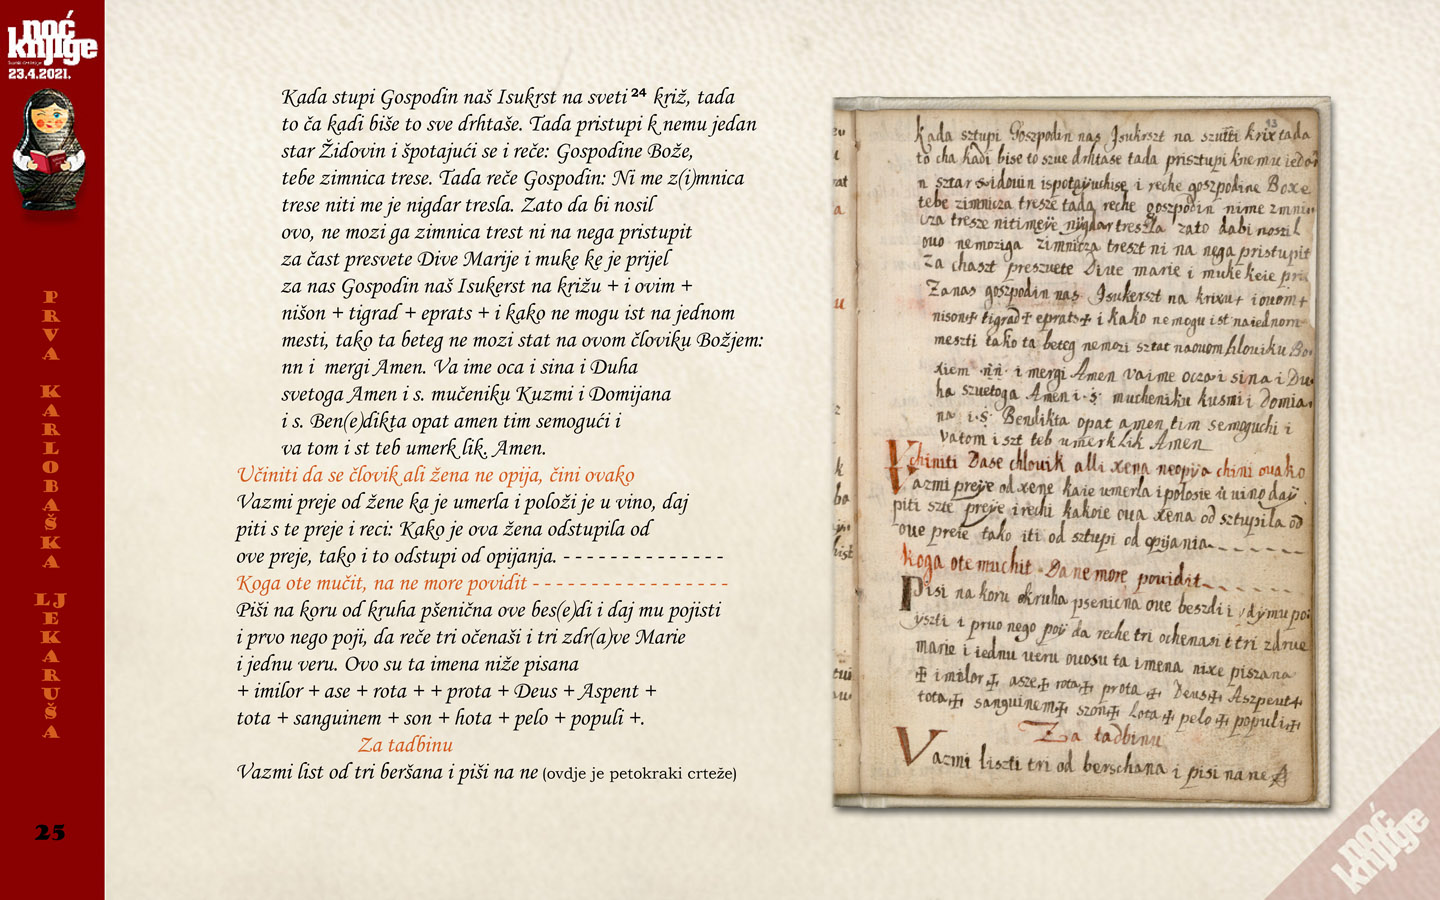 noć
knjige
23.4.2021.
PRVA KARLOBAŠKA LJEKARUŠA
25
Kada stupi Gospodin naš Isukrst na sveti²⁴ križ, tada
to ča kadi biše to sve drhtaše. Tada pristupi k nemu jedan
star Židovin i špotajući se i reče: Gospodine Bože,
tebe zimnica trese. Tada reče Gospodin: Ni me z(i)mnica
trese niti me je nigdar tresla. Zato da bi nosil
ovo, ne mozi ga zimnica trest ni na nega pristupit
za čast presvete Dive Marije i muke ke je prijel
za nas Gospodin naš Isukerst na križu + i ovim +
nišon + tigrad + eprats + i kako ne mogu ist na jednom
mesti, tako ta beteg ne mozi stat na ovom človiku Božjem:
nn i mergi Amen. Va ime oca i sina i Duha
svetoga Amen i s. mučeniku Kuzmi i Domijana
i s. Ben(e)dikta opat amen tim semogući i
va tom i st teb umerk lik. Amen.
Učiniti da se človik ali žena ne opija, čini ovako
Vazmi preje od žene ka je umerla i položi je u vino, daj
piti s te preje i reci: Kako je ova žena odstupila od
ove preje, tako i to odstupi od opijanja. - - - - - - - - - - - - - -
Koga ote mučit, na ne more povidit - - - - - - - - - - - - - - - - -
Piši na koru od kruha pšenična ove bes(e)di i daj mu pojisti
i prvo nego poji, da reče tri očenaši i tri zdr(a)ve Marie
i jednu veru. Ovo su ta imena niže pisana
+ imilor + ase + rota + + prota + Deus + Aspent +
tota + sanguinem + son + hota + pelo + populi +.
Za tadbinu
Vazmi list od tri beršana i piši na ne (ovdje je petokraki crteže)
93
Kada sztupi Goszpodin nas Jsukrszt na szueti krix tada
to cha kadi bise to szue drhtase tada prisztupi knemu ieda
n sztar svidouin ispotayuchise i reche goszpodine Boxe
tebe zimnicza tresze tada reche goszpodin nime zmni
cza tresze niti meÿe nÿgdar treszla zato dabi noszil
ouo nemoziga zimnicza treszt ni na nega pristupit
Za chaszt preszuete Diue marie i muke keie pri
Zanas goszpodin nas Jsukerszt na krixu+ i ouom+
nison+ tigrad+ eprats+ i kako nemogu ist naiednom
meszti tako ta beteg nemozi sztat naouom hlouiku Bo
xiem nn i mergi Amen vaime ocza i sina i Du
ha szuetoga Amen i s. mucheniku kusmi i Domia
na i s. Bendikta opat amen tim semoguchi i
vatom i szt teb umerk lik Amen
Vchiniti Dase chlouik alli xena neopiya chini ouako
Vazmi preye od xene kaie umerla i polosie u uino daÿ
piti szte preÿe i rechi kakoie oua xena od sztupila od
oue preie tako iti od sztupi od opijania
Koga ote muchit Da ne more povidit
Pisi na koru okruha psenicna oue beszdi i dÿmu po
yszti i pruo nego poÿ da reche tri ochenasi i tri zdrue
marie i iednu ueru ouosu ta imena nixe piszana
+ imilor + asze + rota + prota + Deus + Aszpent +
tota + sanguinem + szon + hota + pelo + populi +
Za tadbinu
Vazmi liszti tri od berschana i pisi nane
noć
knjige